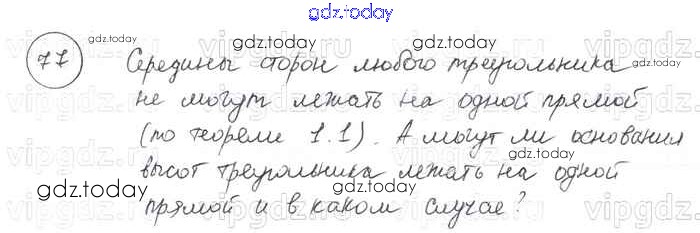 gdz.today
77 Середины сторон любого треугольника
не могут лежать на одной прямой
(по теореме 1.1). А могут ли основания
высот треугольника лежать на одной
прямой и в каком случае?
gdz.today
gdz.today
gdz.today
gdz.today
gdz.today
gdz.today
gdz.today
gdz.today
gdz.today
gdz.today